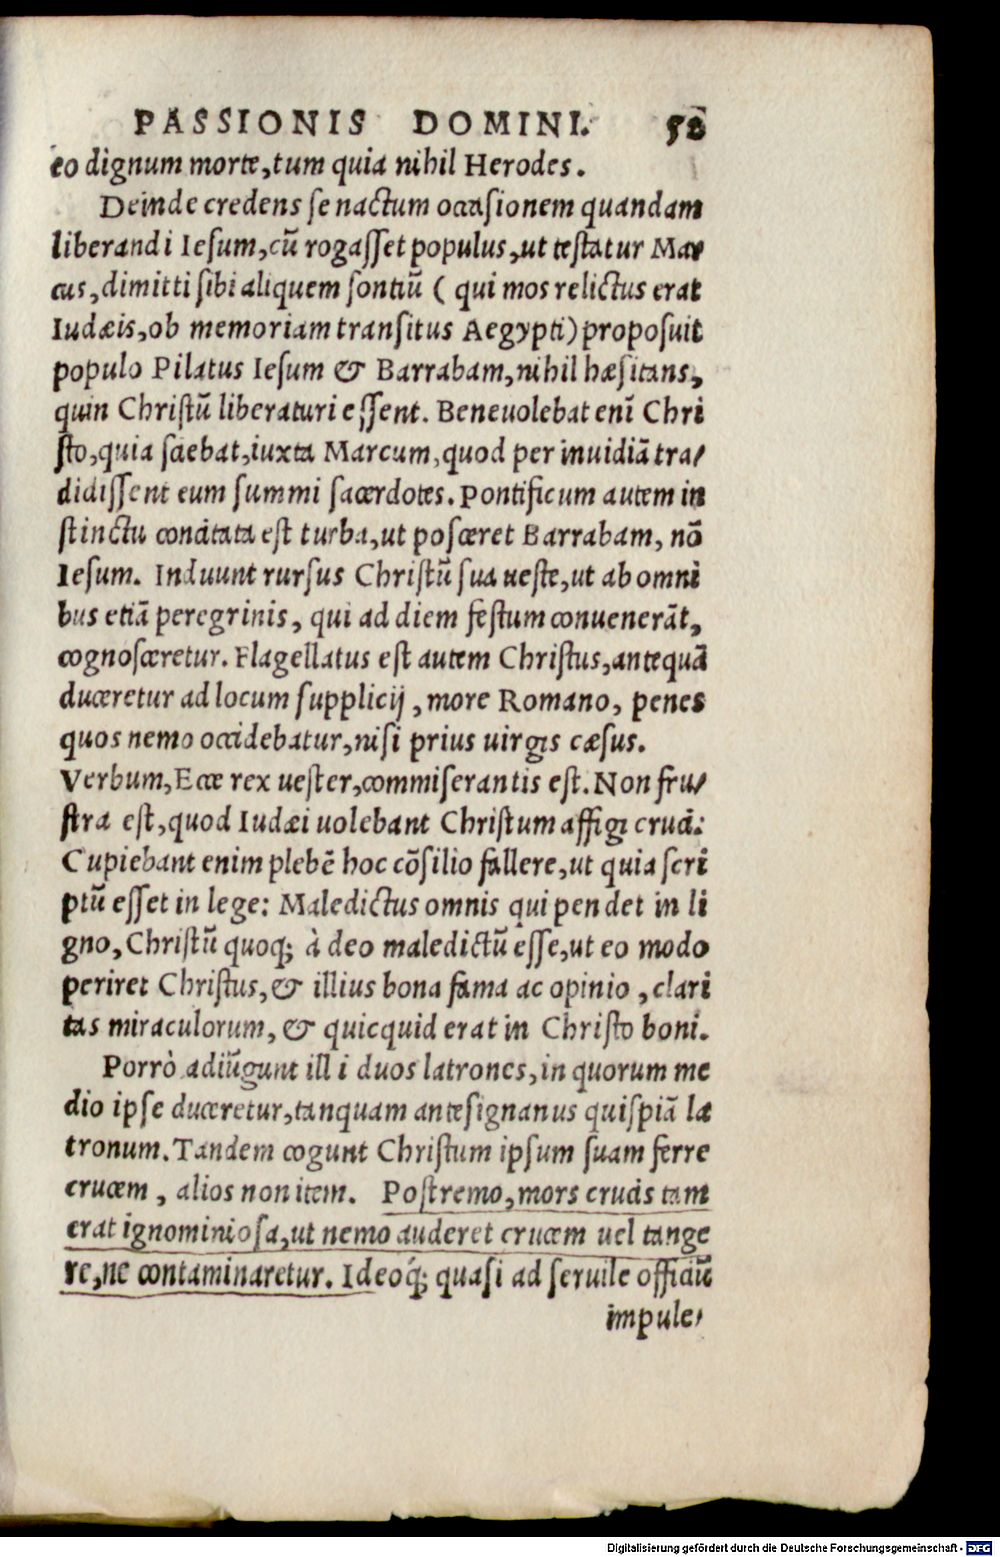 PASSIONIS DOMINI. 58
eo dignum morte, tum quia nihil Herodes.
Deinde credens se nactum occasionem quandam
liberandi Iesum, cū rogasset populus, ut testatur Mar
cus, dimitti sibi aliquem sontiū ( qui mos relictus erat
Iudæis, ob memoriam transitus Aegypti) proposuit
populo Pilatus Iesum & Barrabam, nihil hæsitans,
quin Christū liberaturi essent. Beneuolebat enī Chri
sto, quia sciebat, iuxta Marcum, quod per inuidiā tra/
didissent eum summi sacerdotes. Pontificum autem in
stinctu concitata est turba, ut posceret Barrabam, nō
Iesum. Induunt rursus Christū sua ueste, ut ab omni
bus etiā peregrinis, qui ad diem festum conuenerāt,
cognosceretur. Flagellatus est autem Christus, antequā
duceretur ad locum supplicij, more Romano, penes
quos nemo occidebatur, nisi prius uirgis cæsus.
Verbum, Ecce rex uester, commiserantis est. Non fru/
stra est, quod Iudæi uolebant Christum affigi cruci:
Cupiebant enim plebē hoc cōsilio fallere, ut quia scri
ptū esset in lege: Maledictus omnis qui pendet in li
gno, Christū quoq; à deo maledictū esse, ut eo modo
periret Christus, & illius bona fama ac opinio, clari
tas miraculorum, & quicquid erat in Christo boni.
Porrò adiūgunt illi duos latrones, in quorum me
dio ipse duceretur, tanquam antesignanus quispiā la
tronum. Tandem cogunt Christum ipsum suam ferre
crucem, alios non item. Postremo, mors crucis tam
erat ignominiosa, ut nemo auderet crucem uel tange
re, ne contaminaretur. Ideoq́; quasi ad seruile officiū
impule/
Digitalisierung gefördert durch die Deutsche Forschungsgemeinschaft - DFG